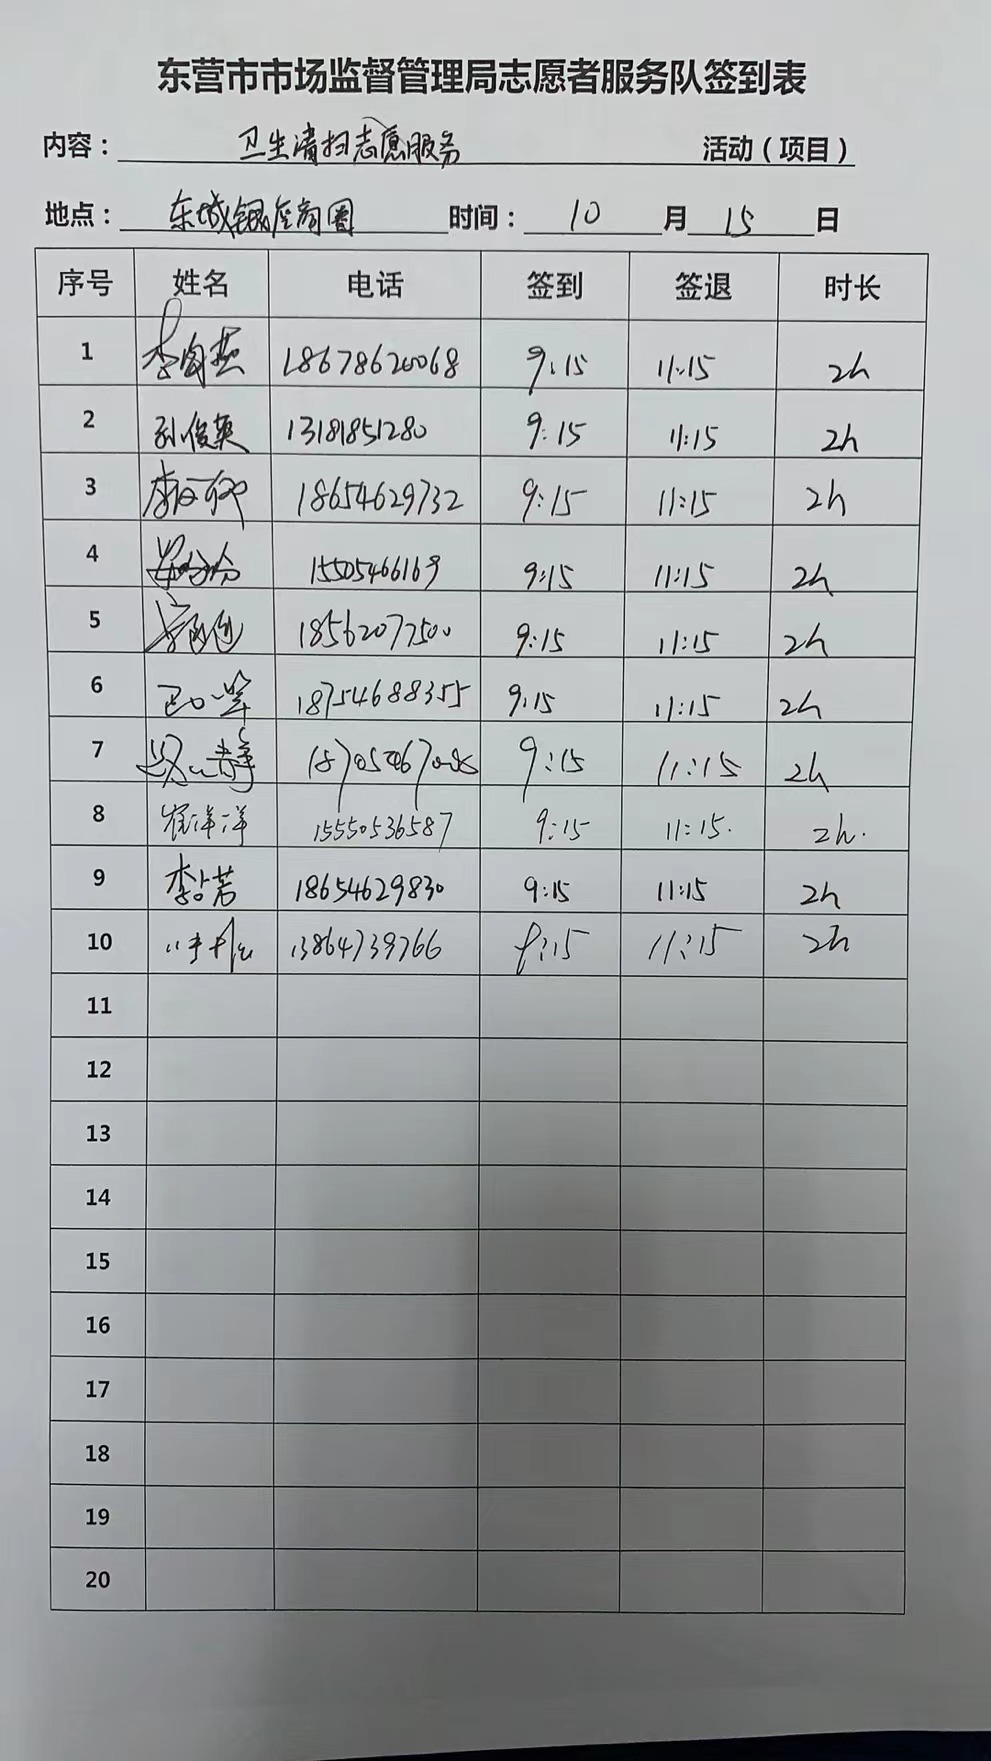 东营市市场监督管理局志愿者服务队签到表
内容：卫生清扫志愿服务 活动（项目）
地点：东城银座商圈 时间：10月15日
序号 姓名 电话 签到 签退 时长
1 18678620068 9:15 11:15 2h
2 孙俊英 13181851280 9:15 11:15 2h
3 18654629732 9:15 11:15 2h
4 15505466169 9:15 11:15 2h
5 18562077500 9:15 11:15 2h
6 18754688355 9:15 11:15 2h
7 9:15 11:15 2h
8 崔洋洋 15550536587 9:15 11:15. 2h.
9 李占芳 18654629830 9:15 11:15 2h
10 13864739766 9:15 11:15 2h
11
12
13
14
15
16
17
18
19
20